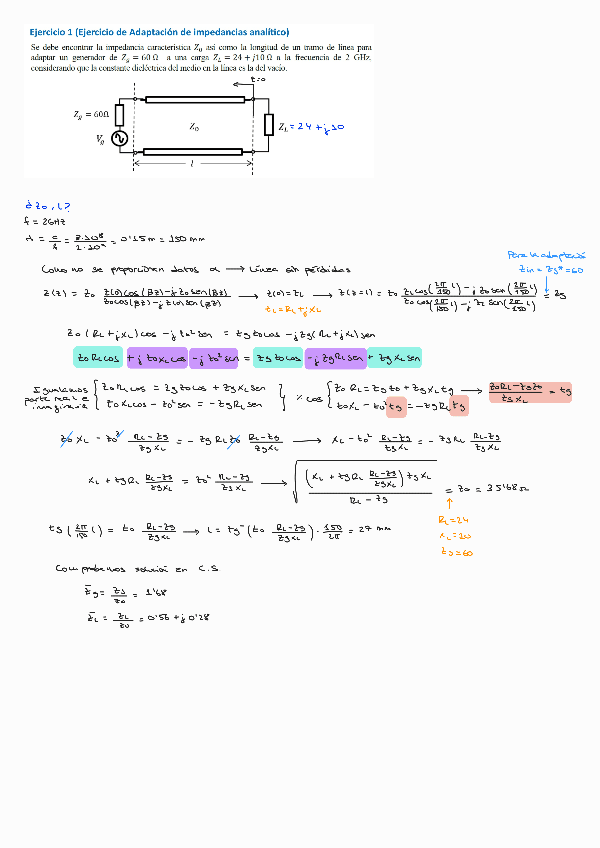 Ejercicio 1 (Ejercicio de Adaptación de impedancias analítico)
Se debe encontrar la impedancia característica Z₀ así como la longitud de un tramo de línea para
adaptar un generador de Z_g = 60 Ω a una carga Z_L = 24 + j10 Ω a la frecuencia de 2 GHz,
considerando que la constante dieléctrica del medio en la línea es la del vacío.
z=0
Z_g = 60Ω
V_g
Z₀
Z_L = 24 + j10
l
¿Z₀, l?
f = 2GHz
λ = c/f = 3·10⁸/2·10⁹ = 0'15m = 150 mm
Para la adaptació
Z_in = Z_g* = 60
Como no se proporcionan datos α → Línea sin pérdidas
Z(z) = Z₀ (Z(0)cos(βz) - j Z₀ sen(βz))/(Z₀cos(βz) - j Z(0) sen(βz)) → Z(0) = Z_L → Z(z=l) = Z₀ (Z_L cos(2π/150 l) - j Z₀ sen(2π/150 l))/(Z₀ cos(2π/150 l) - j Z_L sen(2π/150 l)) = Z_g
Z_L = R_L + jX_L
Z₀ (R_L + jX_L) cos - j Z₀² sen = Z_g Z₀ cos - j Z_g (R_L + jX_L) sen
Z₀ R_L cos + j Z₀ X_L cos - j Z₀² sen = Z_g Z₀ cos - j Z_g R_L sen + Z_g X_L sen
Igualamos
parte real e
imaginaria
{ Z₀ R_L cos = Z_g Z₀ cos + Z_g X_L sen } × cos { Z₀ R_L = Z_g Z₀ + Z_g X_L tg → (Z₀R_L - Z_g Z₀)/(Z_g X_L) = tg
Z₀ X_L cos - Z₀² sen = - Z_g R_L sen
Z₀ X_L - Z₀² tg = - Z_g R_L tg
Z₀ X_L - Z₀² Z₀ (R_L - Z_g)/(Z_g X_L) = - Z_g R_L Z₀ (R_L - Z_g)/(Z_g X_L) → X_L - Z₀² (R_L - Z_g)/(Z_g X_L) = - Z_g R_L (R_L - Z_g)/(Z_g X_L)
X_L + Z_g R_L (R_L - Z_g)/(Z_g X_L) = Z₀² (R_L - Z_g)/(Z_g X_L) → √((X_L + Z_g R_L (R_L - Z_g)/(Z_g X_L)) Z_g X_L/(R_L - Z_g)) = Z₀ = 35'68 Ω
R_L = 24
Z_g = 60
tg (2π/150 l) = Z₀ (R_L - Z_g)/(Z_g X_L) → l = tg⁻ (Z₀ (R_L - Z_g)/(Z_g X_L)) · 150/2π = 27 mm
Comprobamos solución en C.S
Z̄_g = Z_g/Z₀ = 1'68
Z̄_L = Z_L/Z₀ = 0'56 + j 0'28